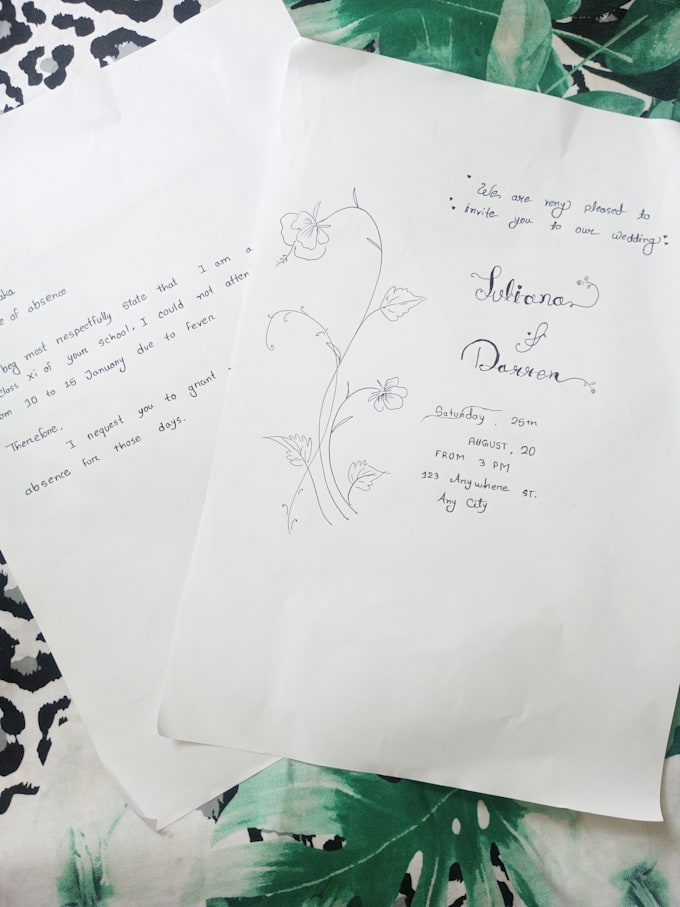 aka
e of absence
beg most respectfully state that I am a
class xi of your school. I could not atten
om 10 to 15 January due to Fever
Therefore,
I request you to grant
absence for those days.
We are very pleased to
invite you to our wedding
Juliana
&
Darren
Saturday, 25th
AUGUST, 20
FROM 3 PM
123 Anywhere ST.
Any City